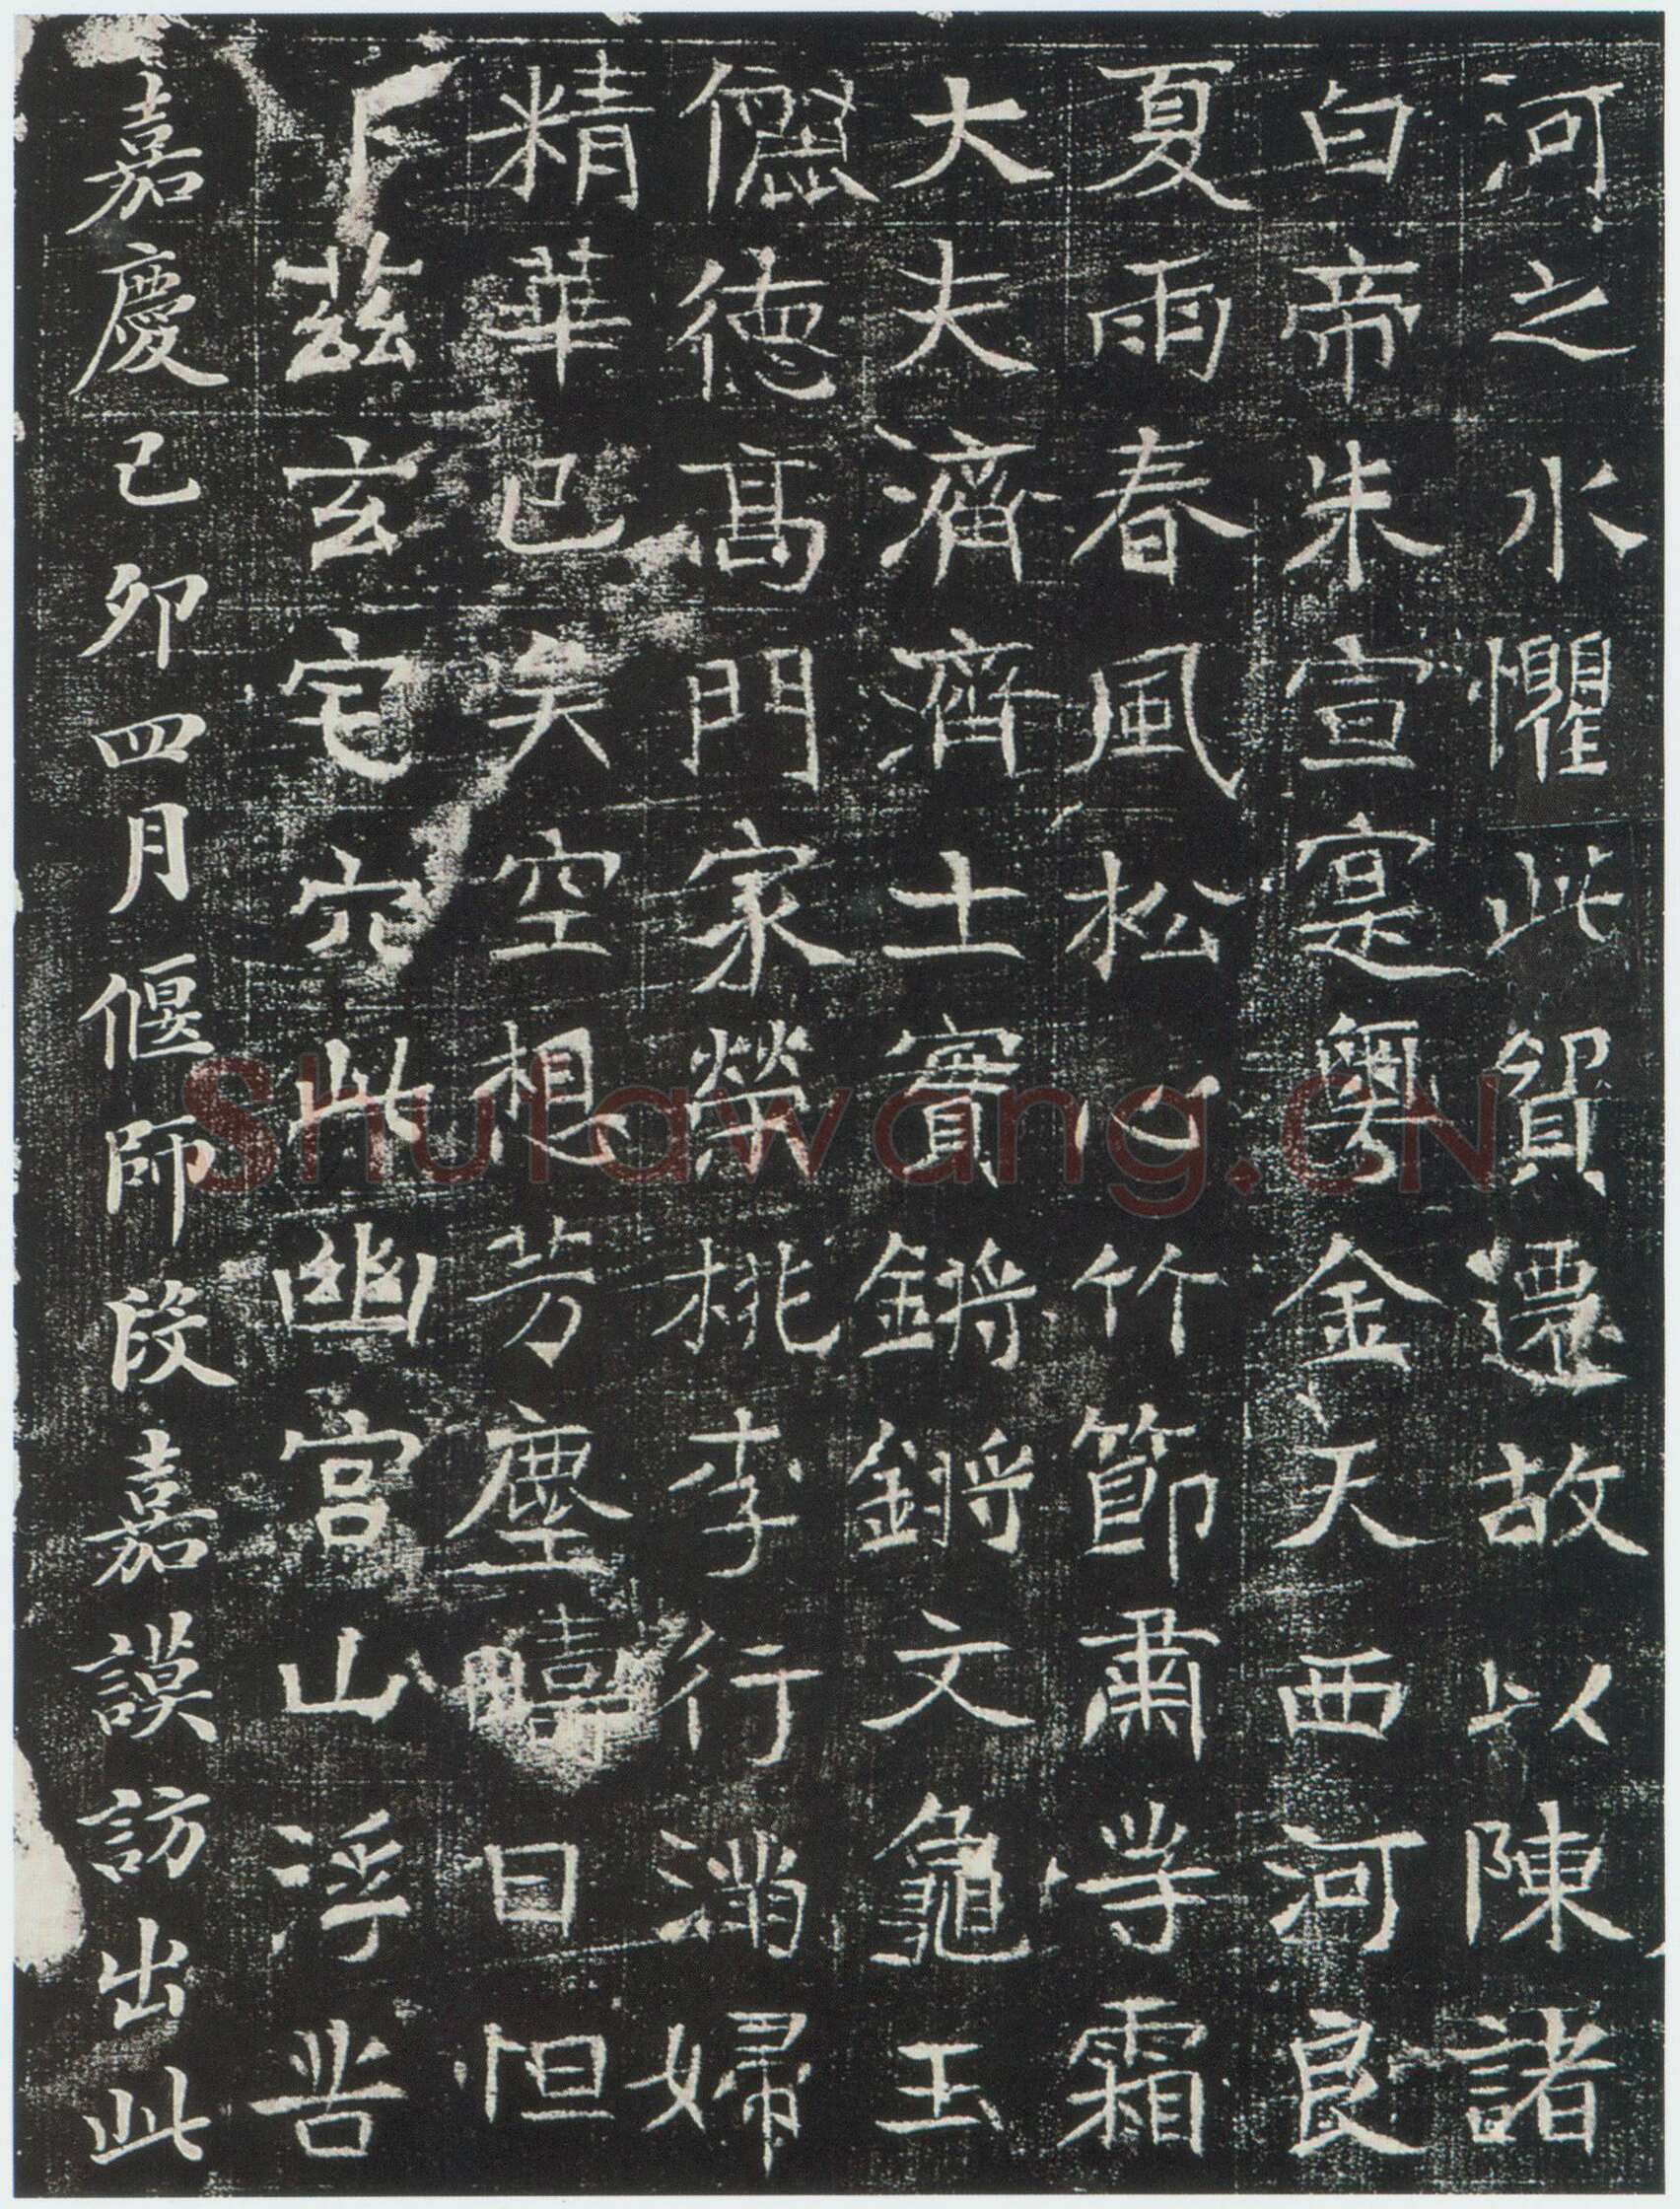 河之水懼此貿遷故以陳諸
白帝朱宣寔粵金天西河良
夏雨春風松心竹節肅等霜
大夫濟濟士實鏘鏘文龜玉
儷德高門家榮桃李行消婦
精華已矣空想芳塵疇日怛
卜茲玄宅穴此幽宮山浮苦
嘉慶己卯四月偃師段嘉謨訪出此
Shufawang.CN